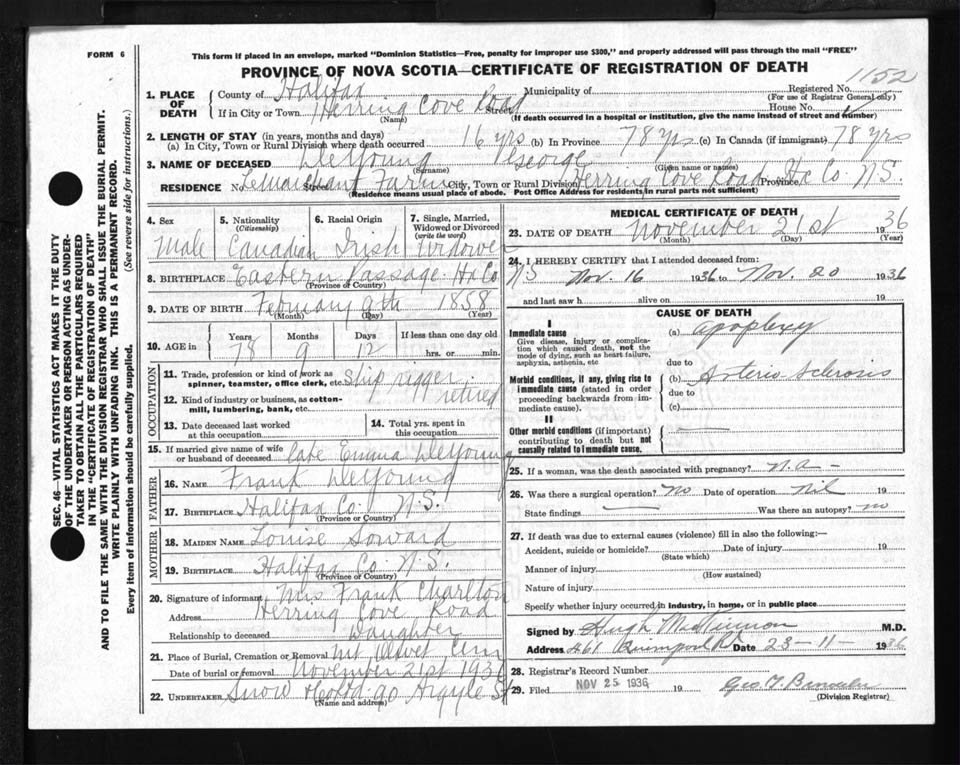 FORM 6
This form if placed in an envelope, marked "Dominion Statistics—Free, penalty for improper use $300," and properly addressed will pass through the mail "FREE"
PROVINCE OF NOVA SCOTIA—CERTIFICATE OF REGISTRATION OF DEATH
1152
1. PLACE OF DEATH
County of Halifax Municipality of
Registered No.
(For use of Registrar General only)
If in City or Town Herring Cove Road Street House No.
(Name) (If death occurred in a hospital or institution, give the name instead of street and number)
2. LENGTH OF STAY (in years, months and days)
(a) In City, Town or Rural Division where death occurred 16 yrs (b) In Province 78 yrs (c) In Canada (if immigrant) 78 yrs
3. NAME OF DECEASED DeYoung George
(Surname) (Given name or names)
RESIDENCE No. LeMarchant Street Farm City, Town or Rural Division Herring Cove Road Province Hx Co. N.S.
(Residence means usual place of abode. Post Office Address for residents in rural parts not sufficient)
4. Sex
5. Nationality (Citizenship)
6. Racial Origin
7. Single, Married, Widowed or Divorced (write the word)
Male Canadian Irish Widower
8. BIRTHPLACE Eastern Passage Hx Co
(Province or Country)
9. DATE OF BIRTH February 9th 1858
(Month) (Day) (Year)
10. AGE in Years Months Days If less than one day old
78 9 12 hrs. or min.
OCCUPATION
11. Trade, profession or kind of work as spinner, teamster, office clerk, etc. Ship rigger
retired
12. Kind of industry or business, as cotton-mill, lumbering, bank, etc.
13. Date deceased last worked at this occupation
14. Total yrs. spent in this occupation
15. If married give name of wife or husband of deceased Late Emma DeYoung
FATHER
16. NAME Frank DeYoung
17. BIRTHPLACE Halifax Co. N.S.
(Province or Country)
MOTHER
18. MAIDEN NAME Louise Soward
19. BIRTHPLACE Halifax Co. N.S.
(Province or Country)
20. Signature of informant Mrs Frank Charlton
Address Herring Cove Road
Relationship to deceased Daughter
21. Place of Burial, Cremation or Removal Mt Olivet Cem
Date of burial or removal November 21st 1936
22. UNDERTAKER Snow & Co Ltd. 90 Argyle St
(Name and address)
MEDICAL CERTIFICATE OF DEATH
23. DATE OF DEATH November 21st 1936
(Month) (Day) (Year)
24. I HEREBY CERTIFY that I attended deceased from:
N.S Nov. 16 1936 to Nov. 20 1936
and last saw h alive on 19
CAUSE OF DEATH
I
Immediate cause
Give disease, injury or complication which caused death, not the mode of dying, such as heart failure, asphyxia, asthenia, etc
(a) Apoplexy
due to
Morbid conditions, if any, giving rise to immediate cause (stated in order proceeding backwards from immediate cause).
(b) Arterio Sclerosis
due to
(c)
II
Other morbid conditions (if important) contributing to death but not causally related to immediate cause.
25. If a woman, was the death associated with pregnancy? N.A –
26. Was there a surgical operation? No Date of operation Nil 19
State findings Was there an autopsy? no
27. If death was due to external causes (violence) fill in also the following:—
Accident, suicide or homicide? Date of injury 19
(State which)
Manner of injury
(How sustained)
Nature of injury
Specify whether injury occurred in industry, in home, or in public place
Signed by Hugh MacKinnon M.D.
Address 461 Quinpool Rd Date 23-11- 1936
28. Registrar's Record Number
29. Filed NOV 25 1936 19
(Division Registrar)
SEC. 46—VITAL STATISTICS ACT MAKES IT THE DUTY
OF THE UNDERTAKER OR PERSON ACTING AS UNDER-
TAKER TO OBTAIN ALL THE PARTICULARS REQUIRED
IN THE "CERTIFICATE OF REGISTRATION OF DEATH"
AND TO FILE THE SAME WITH THE DIVISION REGISTRAR WHO SHALL ISSUE THE BURIAL PERMIT.
WRITE PLAINLY WITH UNFADING INK. THIS IS A PERMANENT RECORD.
Every item of information should be carefully supplied. (See reverse side for instructions.)